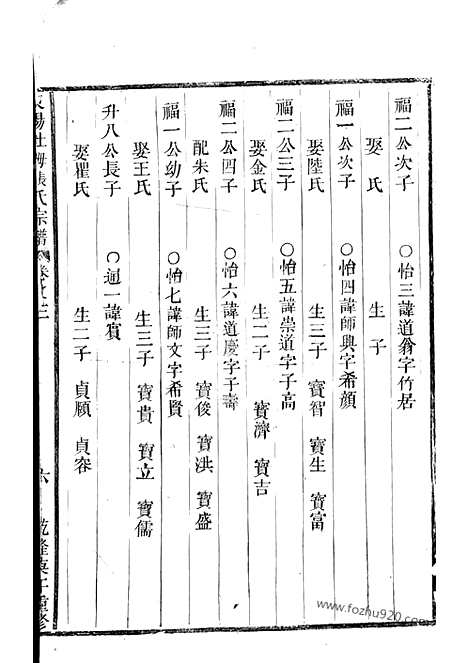 福二公次子　〇怡三諱道翁字竹居
娶　氏　生　子
福一公次子　〇怡四諱師與字希顏
娶陸氏　生三子　寶智　寶生　寶富
福二公三子　〇怡五諱崇道字子高
娶金氏　生二子　寶濟　寶吉
福二公四子　〇怡六諱道慶字子壽
配朱氏　生三子　寶俊　寶洪　寶盛
福一公幼子　〇怡七諱師文字希賢
娶王氏　生三子　寶貴　寶立　寶儒
升八公長子　〇通一諱賓
娶瞿氏　生二子　貞願　貞容
氏宗譜　卷　六　乾隆庚子重修
www.fozhu920.com